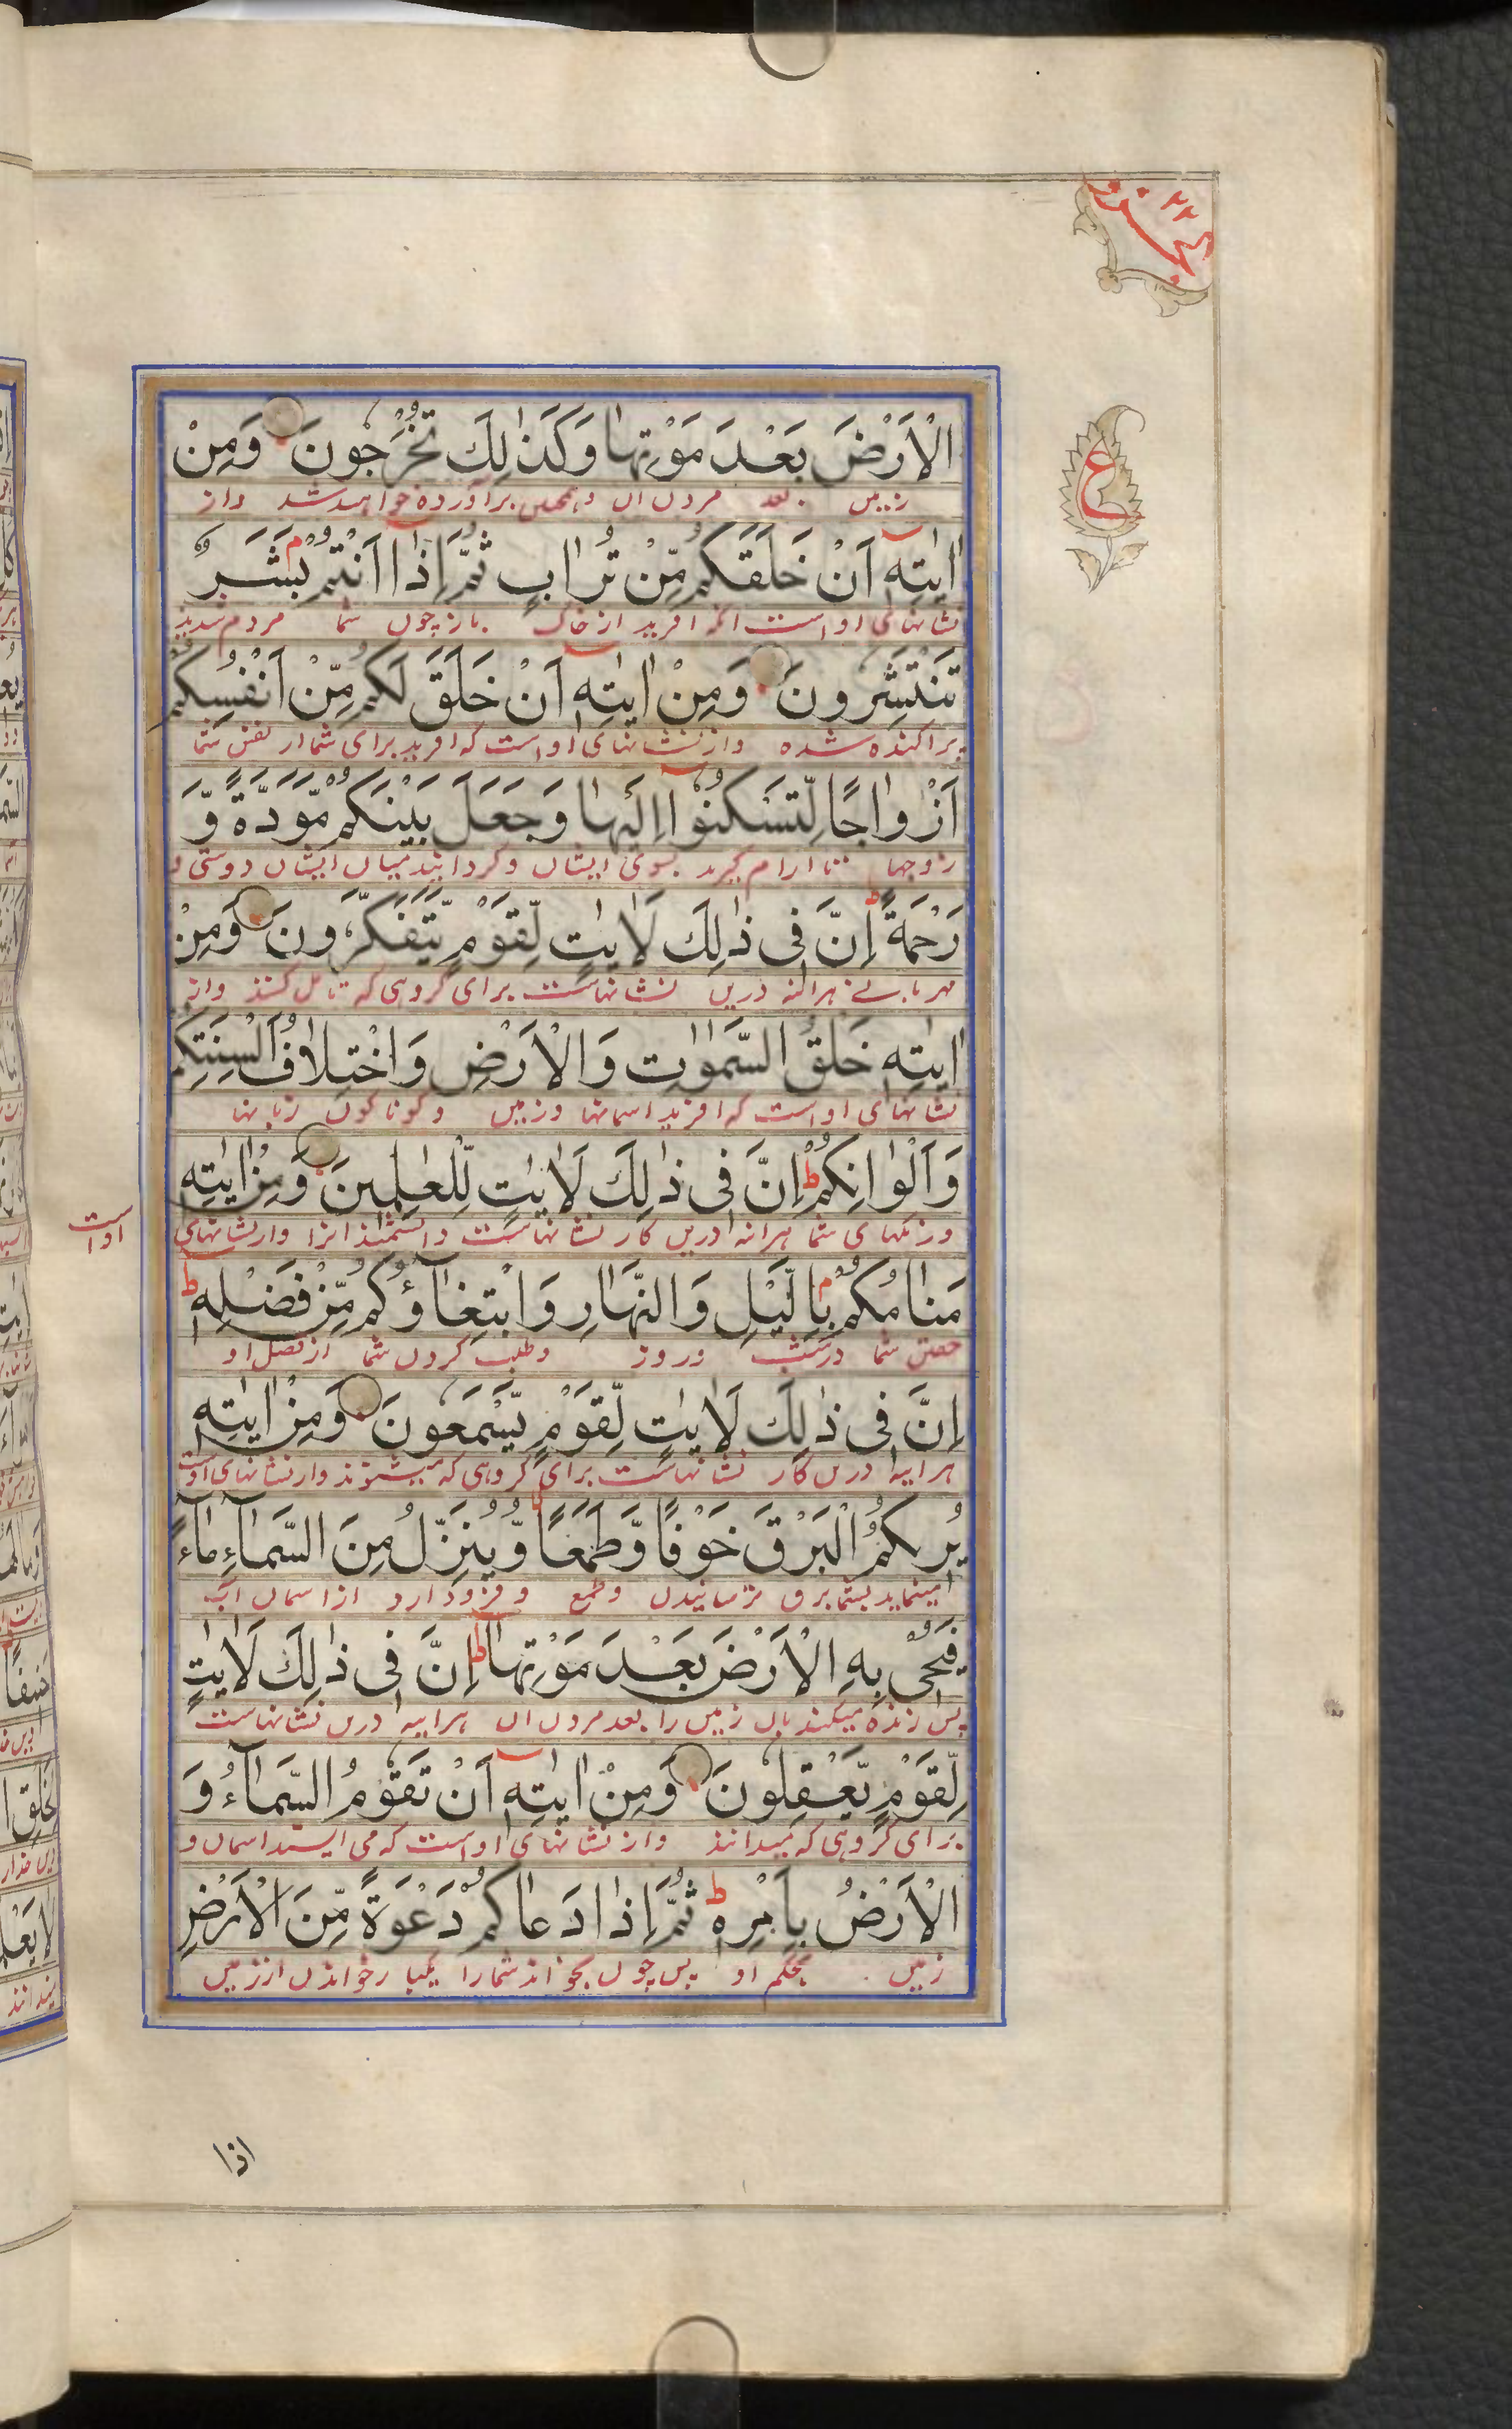 الْاَرْضَ بَعْدَ مَوْتِهَا وَكَذٰلِكَ تُخْرَجُوْنَ وَمِنْ
زمین بعد مردن ان و همچنین براورده خواهید شد واز
اٰيٰتِهٖٓ اَنْ خَلَقَكُمْ مِّنْ تُرَابٍ ثُمَّ اِذَا اَنْتُمْ بَشَرٌ
نشانهای او است انکه افرید از خاک باز چون شما مردم شدید
تَنْتَشِرُوْنَ وَمِنْ اٰيٰتِهٖٓ اَنْ خَلَقَ لَكُمْ مِّنْ اَنْفُسِكُمْ
پراکنده شده واز نشانهای او است که افرید برای شما از نفس شما
اَزْوَاجًا لِّتَسْكُنُوْٓا اِلَيْهَا وَجَعَلَ بَيْنَكُمْ مَّوَدَّةً وَّ
زوجها تا ارام گیرید بسوی ایشان و گردانید میان ایشان دوستی و
رَحْمَةً ط اِنَّ فِیْ ذٰلِكَ لَاٰيٰتٍ لِّقَوْمٍ يَّتَفَكَّرُوْنَ وَمِنْ
مهربانی هرائنه درین نشانهاست برای گروهی که تامل کنند واز
اٰيٰتِهٖ خَلْقُ السَّمٰوٰتِ وَالْاَرْضِ وَاخْتِلَافُ اَلْسِنَتِكُمْ
نشانهای او است که افرید اسمانها و زمین و گوناگون زبانها
وَاَلْوَانِكُمْ ط اِنَّ فِیْ ذٰلِكَ لَاٰيٰتٍ لِّلْعٰلِمِيْنَ وَمِنْ اٰيٰتِهٖ
ورنگهای شما هرائنه درین کار نشانهاست دانشمندانرا واز نشانهای
او است
مَنَامُكُمْ بِالَّيْلِ وَالنَّهَارِ وَابْتِغَآؤُكُمْ مِّنْ فَضْلِهٖ ط
خفتن شما در شب و روز و طلب کردن شما از فضل او
اِنَّ فِیْ ذٰلِكَ لَاٰيٰتٍ لِّقَوْمٍ يَّسْمَعُوْنَ وَمِنْ اٰيٰتِهٖ
هراینه درین کار نشانهاست برای گروهی که میشنوند واز نشانهای اوست
يُرِيْكُمُ الْبَرْقَ خَوْفًا وَّطَمَعًا وَّيُنَزِّلُ مِنَ السَّمَآءِ مَآءً
مینماید بشما برق ترسانیدن وطمع و فرود ارد از اسمان اب
فَيُحْیٖ بِهِ الْاَرْضَ بَعْدَ مَوْتِهَا ط اِنَّ فِیْ ذٰلِكَ لَاٰيٰتٍ
پس زنده میکند بان زمین را بعد مردن ان هراینه درین نشانهاست
لِّقَوْمٍ يَّعْقِلُوْنَ وَمِنْ اٰيٰتِهٖٓ اَنْ تَقُوْمَ السَّمَآءُ وَ
برای گروهی که میدانند واز نشانهای او است که می ایستد اسمان و
الْاَرْضُ بِاَمْرِهٖ ط ثُمَّ اِذَا دَعَاكُمْ دَعْوَةً مِّنَ الْاَرْضِ
زمین بحکم او پس چون بخواند شمارا یکبار خواندن از زمین
اذا
ع